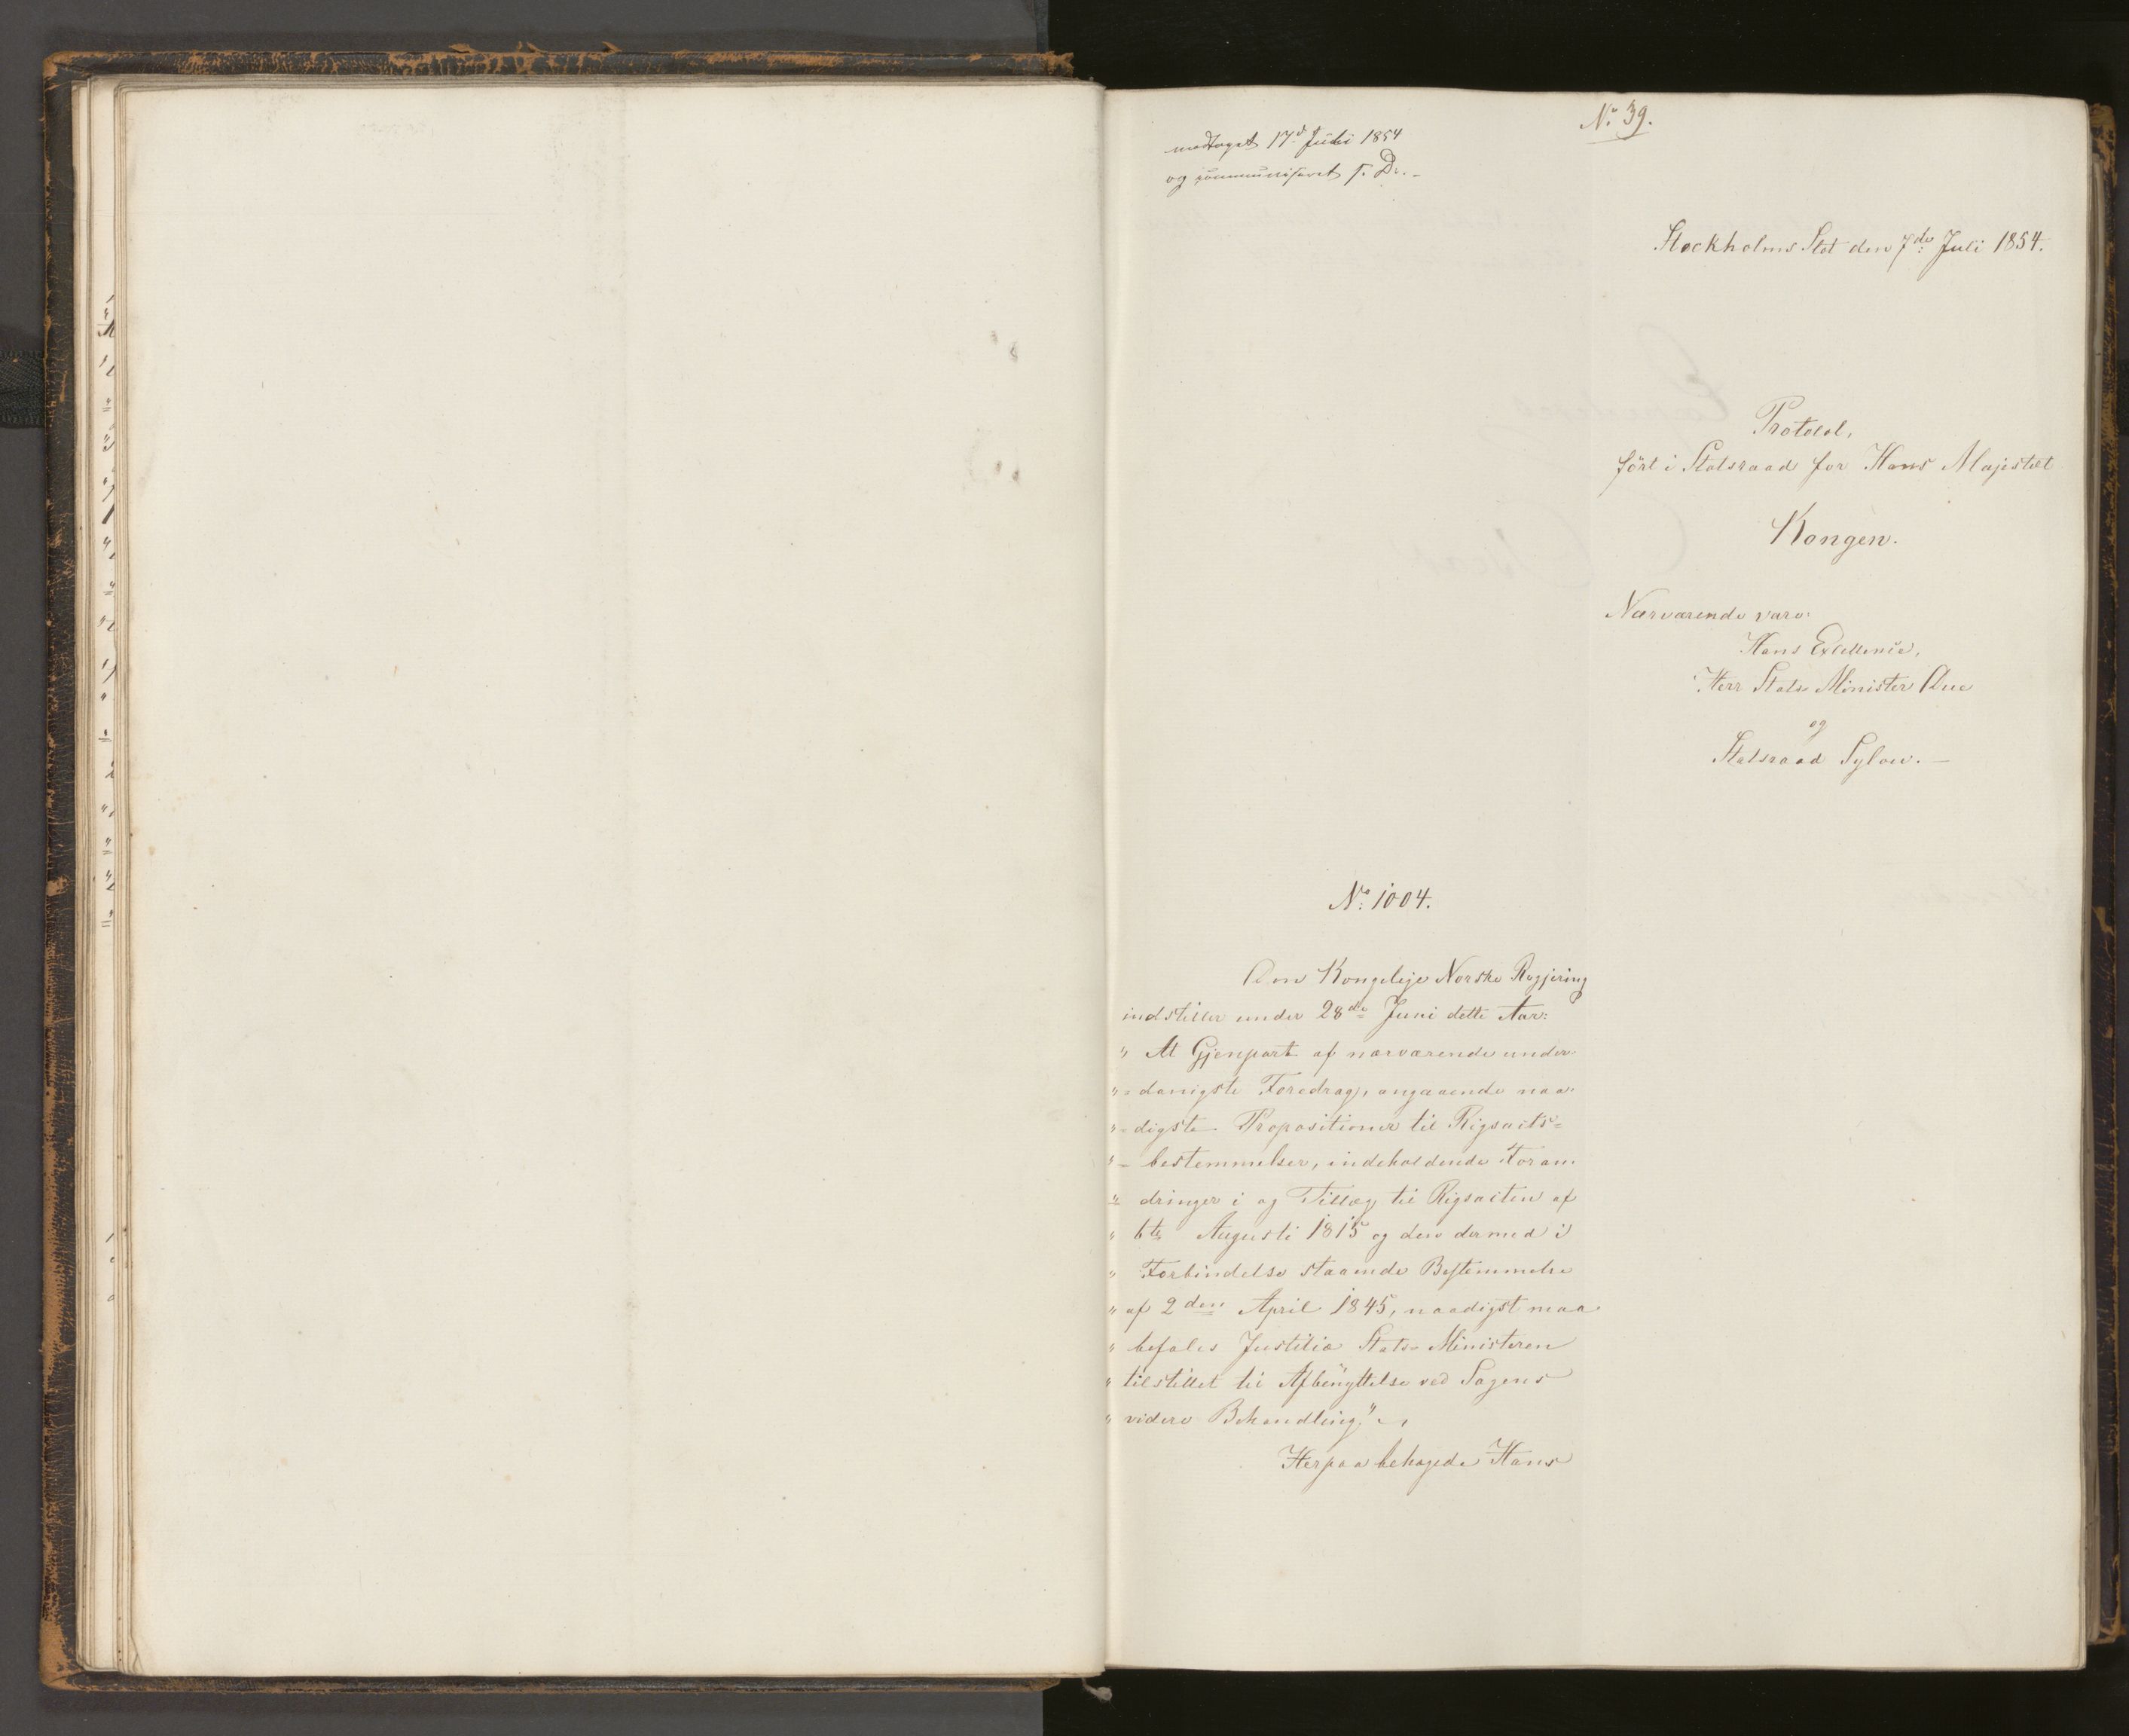 No 39.
modtaget 17d Juli 1854
og communiceret s. D.
Stockholms Slot den 7de Juli 1854.
Protocol,
ført i Statsraad for Hans Majestæt
Kongen.
Nærværende vare:
Hans Excellence,
Herr Stats-Minister Due
og
Statsraad Sylow. —
No 1004.
Den Kongelige Norske Regjering
indstiller under 28de Juni dette Aar:
" At Gjenpart af nærværende under-
"=danigste Foredrag, angaaende naa-
"=digste Propositioner til Rigsacts=
"=bestemmelser, indeholdende Foran-
" dringer i og Tillæg til Rigsacten af
" 6te Augusti 1815 og den dermed i
" Forbindelse staaende Bestemmelse
" af 2den April 1845, naadigst maa
" befales Justitiæ Stats-Ministeren
" tilstillet til Afbenyttelse ved Sagens
" videre Behandling."
Herpaa behagede Hans